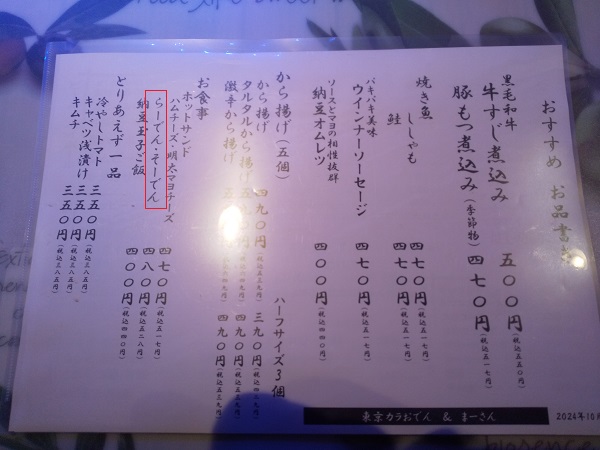 おすすめ お品書き
黒毛和牛
牛すじ煮込み 五〇〇円(税込五五〇円)
豚もつ煮込み(季節物) 四七〇円(税込五一七円)
焼き魚
ししゃも 四七〇円(税込五一七円)
鮭 四七〇円(税込五一七円)
パキパキ美味
ウインナーソーセージ 四七〇円(税込五一七円)
ソースとマヨの相性抜群
納豆オムレツ 四〇〇円(税込四四〇円)
から揚げ(五個) ハーフサイズ3個
から揚げ 四九〇円(税込五三九円) 三九〇円(税込四二九円)
タルタルから揚げ 四九〇円(税込五三九円)
激辛から揚げ 四九〇円(税込五三九円)
お食事
ホットサンド
ハムチーズ・明太マヨチーズ 四七〇円(税込五一七円)
らーでん・そーでん 四八〇円(税込五二八円)
納豆玉子ご飯 四〇〇円(税込四四〇円)
とりあえず一品
冷やしトマト 三五〇円(税込三八五円)
キャベツ浅漬け 三五〇円(税込三八五円)
キムチ 三五〇円(税込三八五円)
東京カラおでん & まーさん
2024年10月